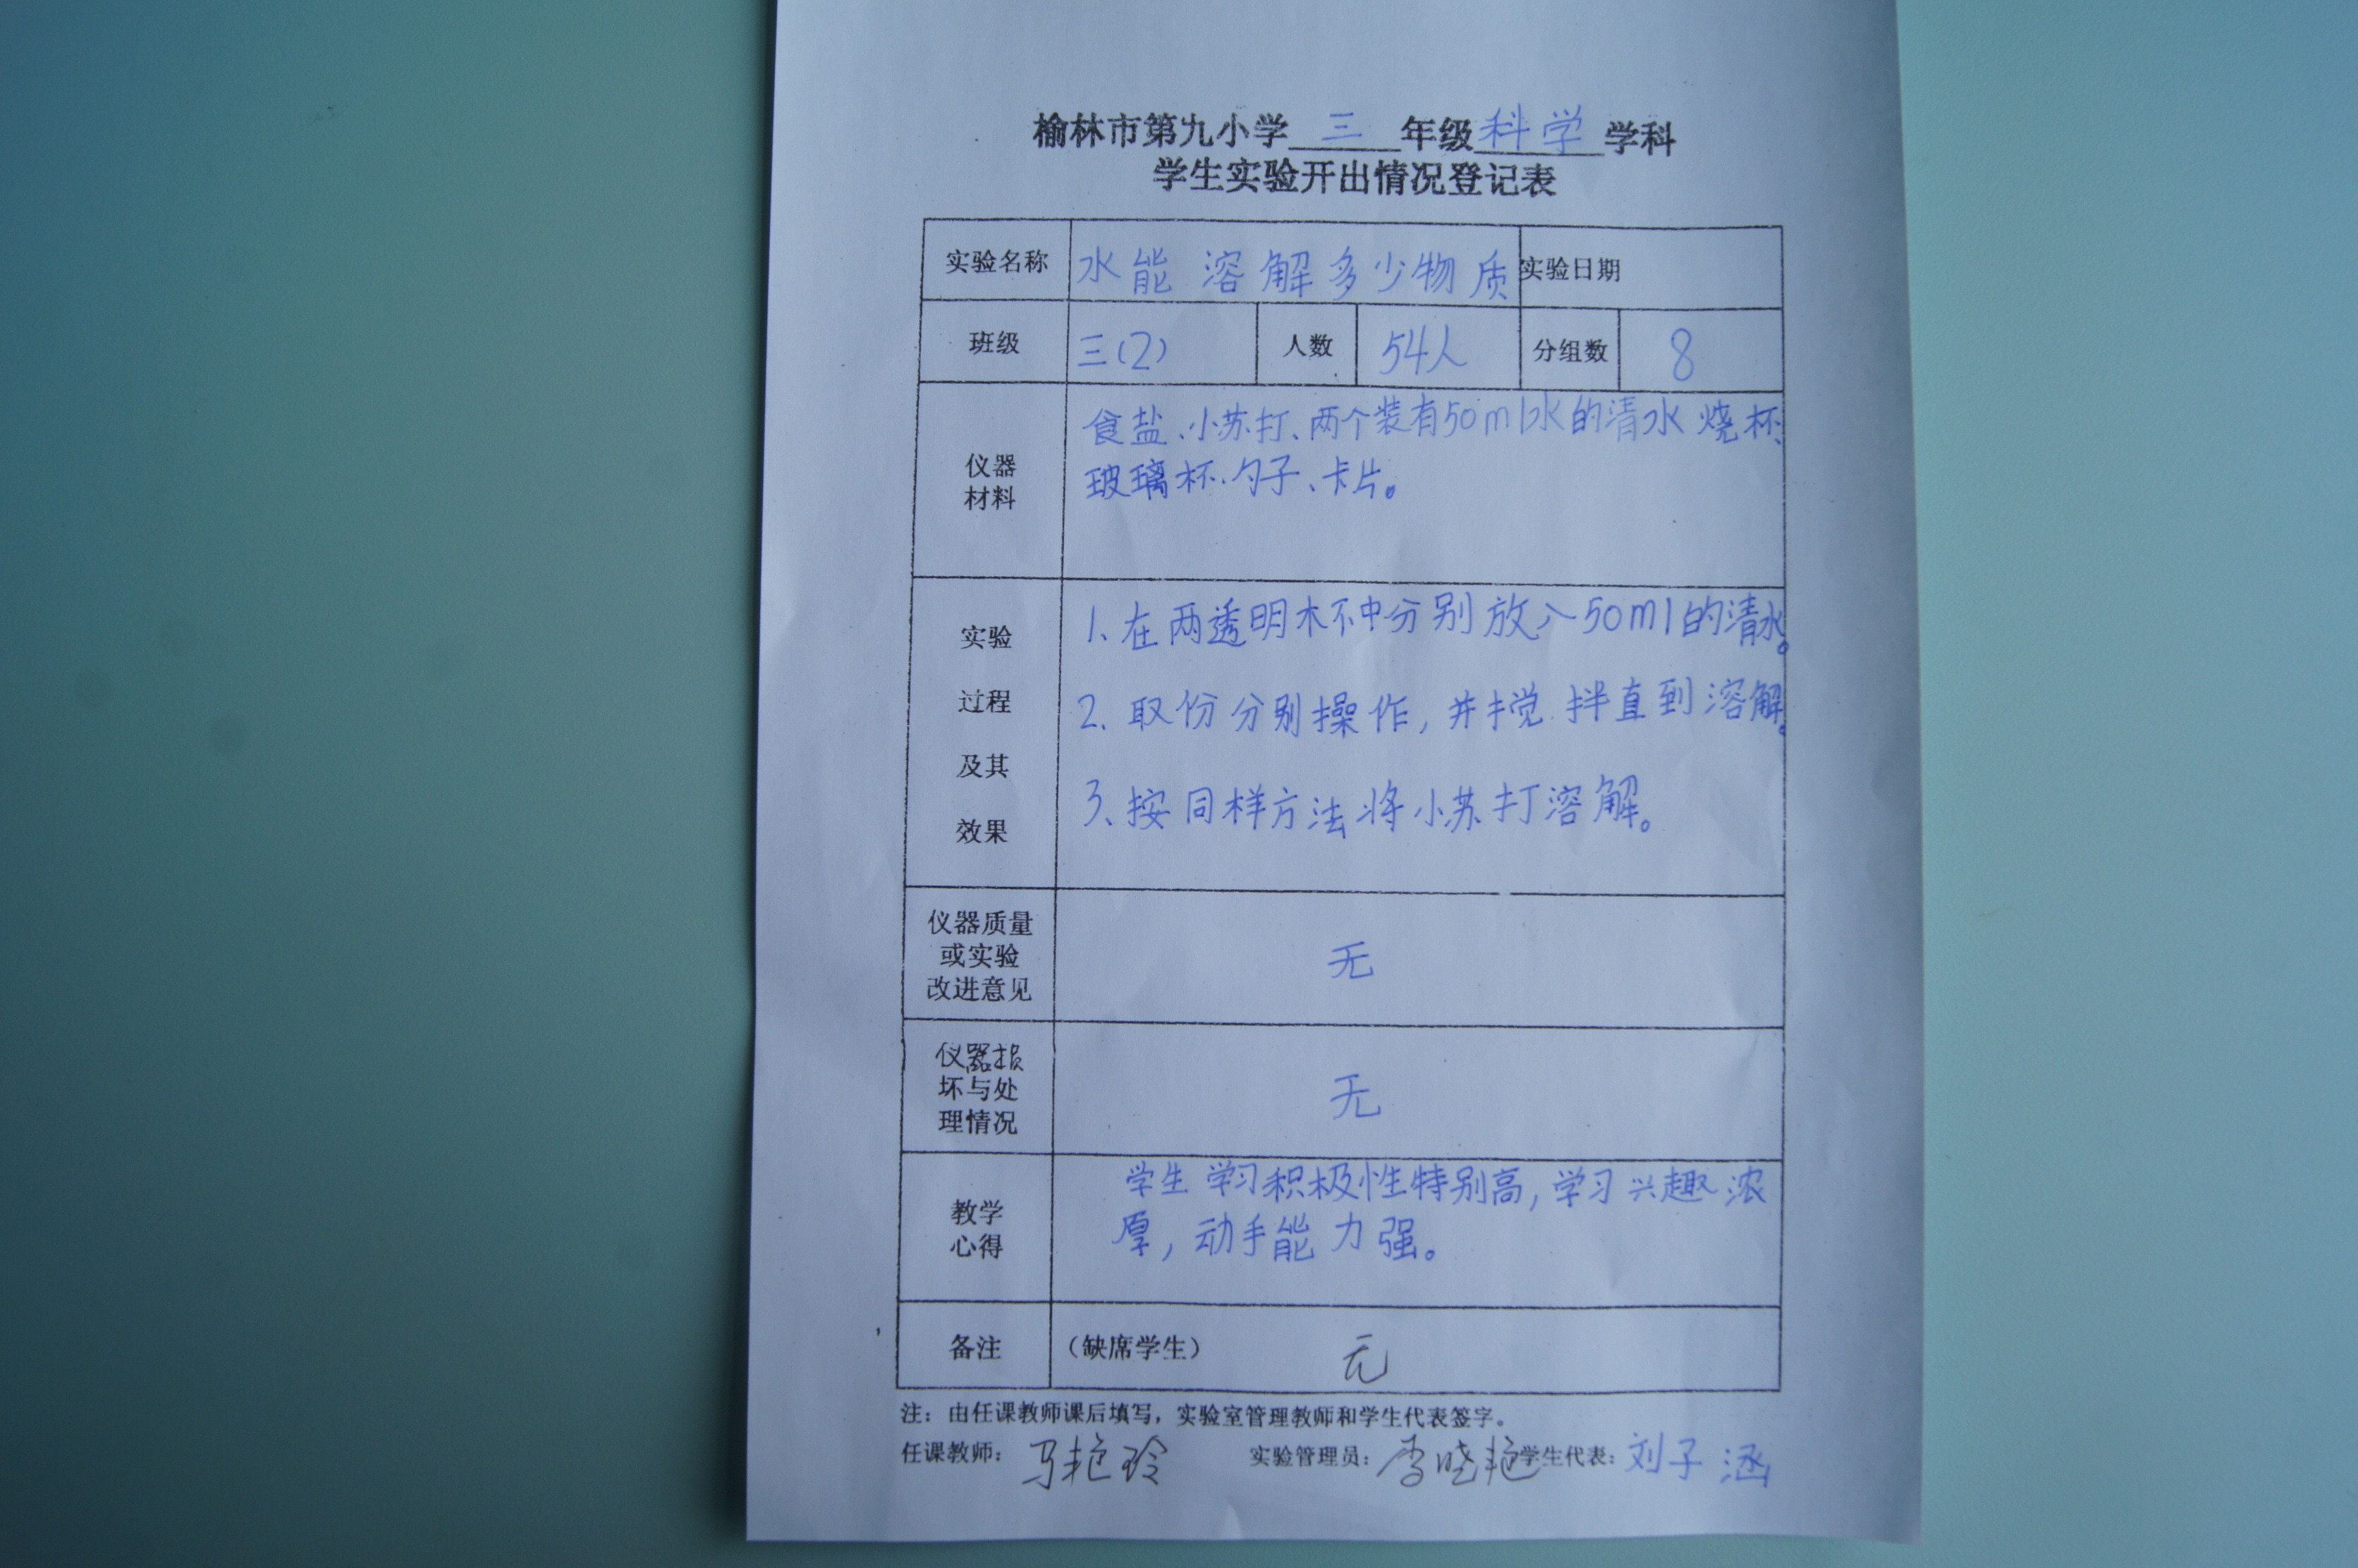 榆林市第九小学 三 年级 科学 学科
学生实验开出情况登记表
实验名称 水能溶解多少物质 实验日期
班级 三(2) 人数 54人 分组数 8
仪器
材料
食盐、小苏打、两个装有50ml水的清水烧杯、
玻璃杯、勺子、卡片。
实验
过程
及其
效果
1、在两透明杯中分别放入50ml的清水。
2、取份分别操作,并搅拌直到溶解。
3、按同样方法将小苏打溶解。
仪器质量
或实验
改进意见
无
仪器损
坏与处
理情况
无
教学
心得
学生学习积极性特别高,学习兴趣浓
厚,动手能力强。
备注 (缺席学生) 无
注:由任课教师课后填写,实验室管理教师和学生代表签字。
任课教师:马艳玲 实验管理员:李晓艳 学生代表:刘子涵